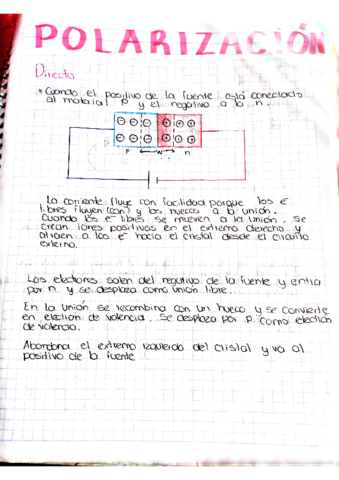 POLARIZACIÓN
Directa
* Cuando el positivo de la fuente está conectado
al material p y el negativo a la n.
P W n
La corriente fluye con facilidad porque los e⁻
libres fluyen (con) y los huecos a la unión.
Cuando los e⁻ libres se mueven a la unión, se
crean iones positivos en el extremo derecho y
atraen a los e⁻ hacia el cristal desde el circuito
externo.
Los electrones salen del negativo de la fuente y entra
por n y se desplaza como unión libre.
En la unión se recombina con un hueco y se convierte
en electrón de valencia. Se desplaza por p como electrón
de valencia.
Abandona el extremo izquierdo del cristal y va al
positivo de la fuente